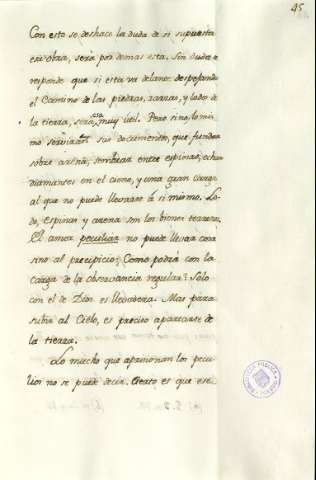 45
Con esto se deshace la duda de si supuesta
esa obra, será por demas esta. Sin duda
responde que si esta va delante despejando
el Camino de las piedras, zarzas, y lodos de
la tierra, será esa muy util. Pero sino, lo mis
mo serviran sus documentos, que fundar
sobre arena, sembrar entre espinas, echar
diamantes en el cieno, y una gran carga
al que no puede llevarse á si mismo. Lo
do, Espinas y arena son los bienes terrenos.
El amor peculiar no puede llevar cosa
sino al precipicio; Como podrá con la
carga de la observancia regular? Solo
con el de Dios es llevadera. Mas para
subir al Cielo, es preciso apartarse de
la tierra.
Lo mucho que aprisionan los pecu
lios no se puede decir. Cierto es que este